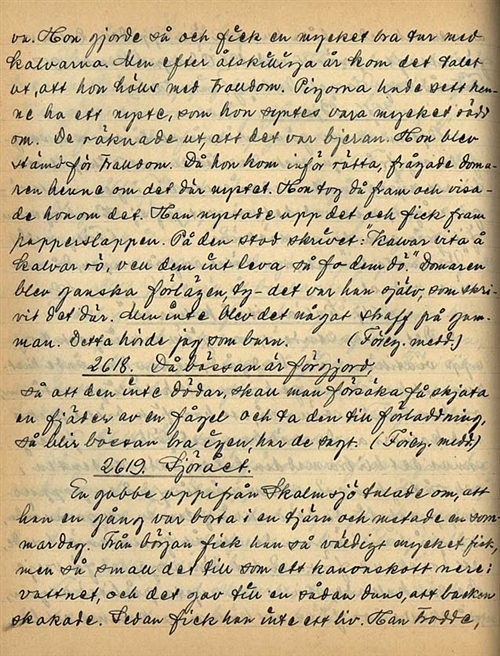 va. Hon gjorde så och fick en mycket bra tur med
kalvarna. Men efter åtskilliga år kom det talet
ut, att hon hölls med trolldom. Pigorna hade sett hen-
ne ha ett nyste, som hon syntes vara mycket rädd
om. De räknade ut, att det var bjeran. Hon blev
stämd för trolldom. Då hon kom inför rätta, frågade doma-
ren henne om det där nystet. Hon tog då fram och visa-
de honom det. Han nystade upp det och fick fram
papperslappen. På den stod skrivet: "Kalvar vita å
kalvar rö, vell dem int leva så få dem dö." Domaren
blev ganska förlägen ty det var han själv, som skri-
vit det där. Men inte blev det något straff på gum-
man. Detta hörde jag som barn. (Föreg. medd.)
2618. Då bössan är förgjord,
så att den inte dödar, skall man försöka få skjuta
en fjäder av en fågel och ta den till förladdning,
så blir bössan bra igen, har de sagt. (Föreg. medd.)
2619. Sjörået.
En gubbe uppifrån Skalmsjö talade om, att
han en gång var borta i en tjärn och metade en som-
mardag. Från början fick han så väldigt mycket fisk,
men så small det till som ett kanonskott nere i
vattnet, och det gav till en sådan duns, att backen
skakade. Sedan fick han inte ett liv. Han trodde,